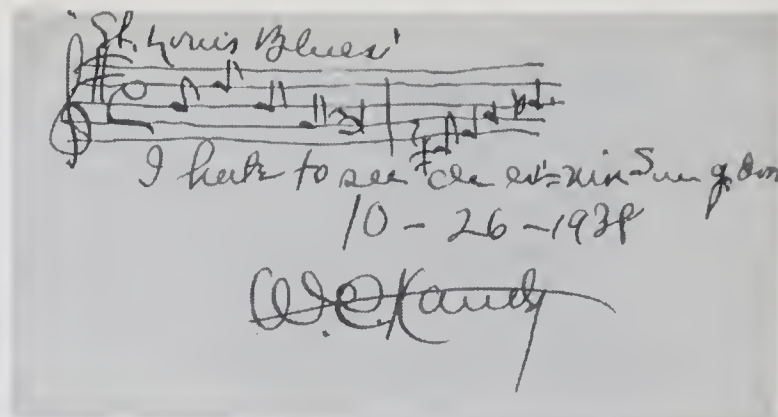 "St. Louis Blues"
I hate to see de ev'=nin Sun go down
10 - 26 - 1938
W.C. Handy